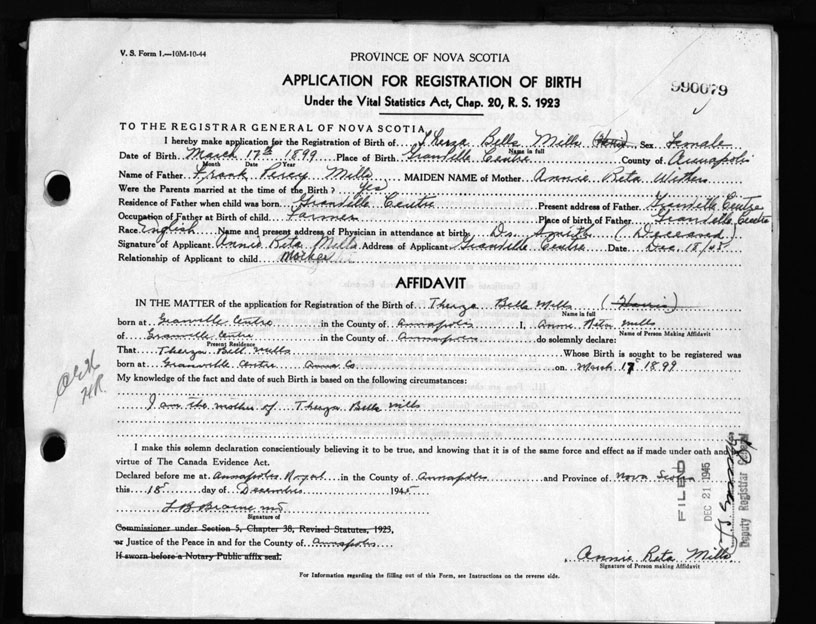 V. S. Form 1.—10M-10-44
PROVINCE OF NOVA SCOTIA
APPLICATION FOR REGISTRATION OF BIRTH
990079
Under the Vital Statistics Act, Chap. 20, R. S. 1923
TO THE REGISTRAR GENERAL OF NOVA SCOTIA
I hereby make application for the Registration of Birth of Therza Bells Mills (Harris) Sex Female
Name in full
Date of Birth March 17th 1899 Place of Birth Granville Centre County of Annapolis
Month Date Year
Name of Father Frank Percy Mills MAIDEN NAME of Mother Annie Reta Withers
Were the Parents married at the time of the Birth? Yes
Residence of Father when child was born Granville Centre Present address of Father Granville Centre
Occupation of Father at Birth of child Farmer Place of birth of Father Granville Centre
Race English Name and present address of Physician in attendance at birth Dr. Smith (Deceased)
Signature of Applicant Annie Reta Mills Address of Applicant Granville Centre Date Dec. 18/45
Relationship of Applicant to child Mother
AFFIDAVIT
IN THE MATTER of the application for Registration of the Birth of Therza Bells Mills (Harris)
Name in full
born at Granville Centre in the County of Annapolis I, Annie Reta Mills
Name of Person Making Affidavit
of Granville Centre in the County of Annapolis do solemnly declare:
Present Residence
That Therza Bell Mills Whose Birth is sought to be registered was
born at Granville Centre Anna Co. on March 17 1899
My knowledge of the fact and date of such Birth is based on the following circumstances:
I am the mother of Therza Bells Mills
I make this solemn declaration conscientiously believing it to be true, and knowing that it is of the same force and effect as if made under oath and
virtue of The Canada Evidence Act.
Declared before me at Annapolis Royal in the County of Annapolis and Province of Nova Scotia
this 18 day of December 1945
Signature of
Commissioner under Section 5, Chapter 38, Revised Statutes, 1923,
or Justice of the Peace in and for the County of Annapolis
If sworn before a Notary Public affix seal.
Annie Reta Mills
Signature of Person making Affidavit
For Information regarding the filling out of this Form, see Instructions on the reverse side.
FILED
DEC 21 1945
Deputy Registrar